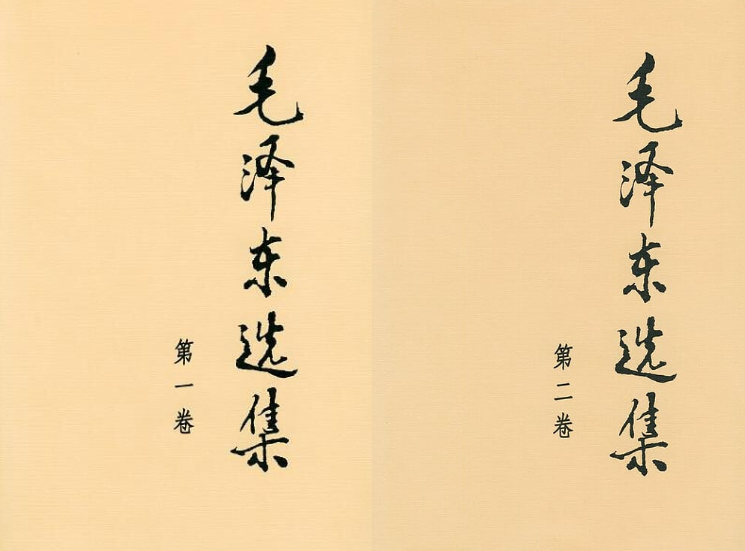 毛泽东选集
第一卷
毛泽东选集
第二卷